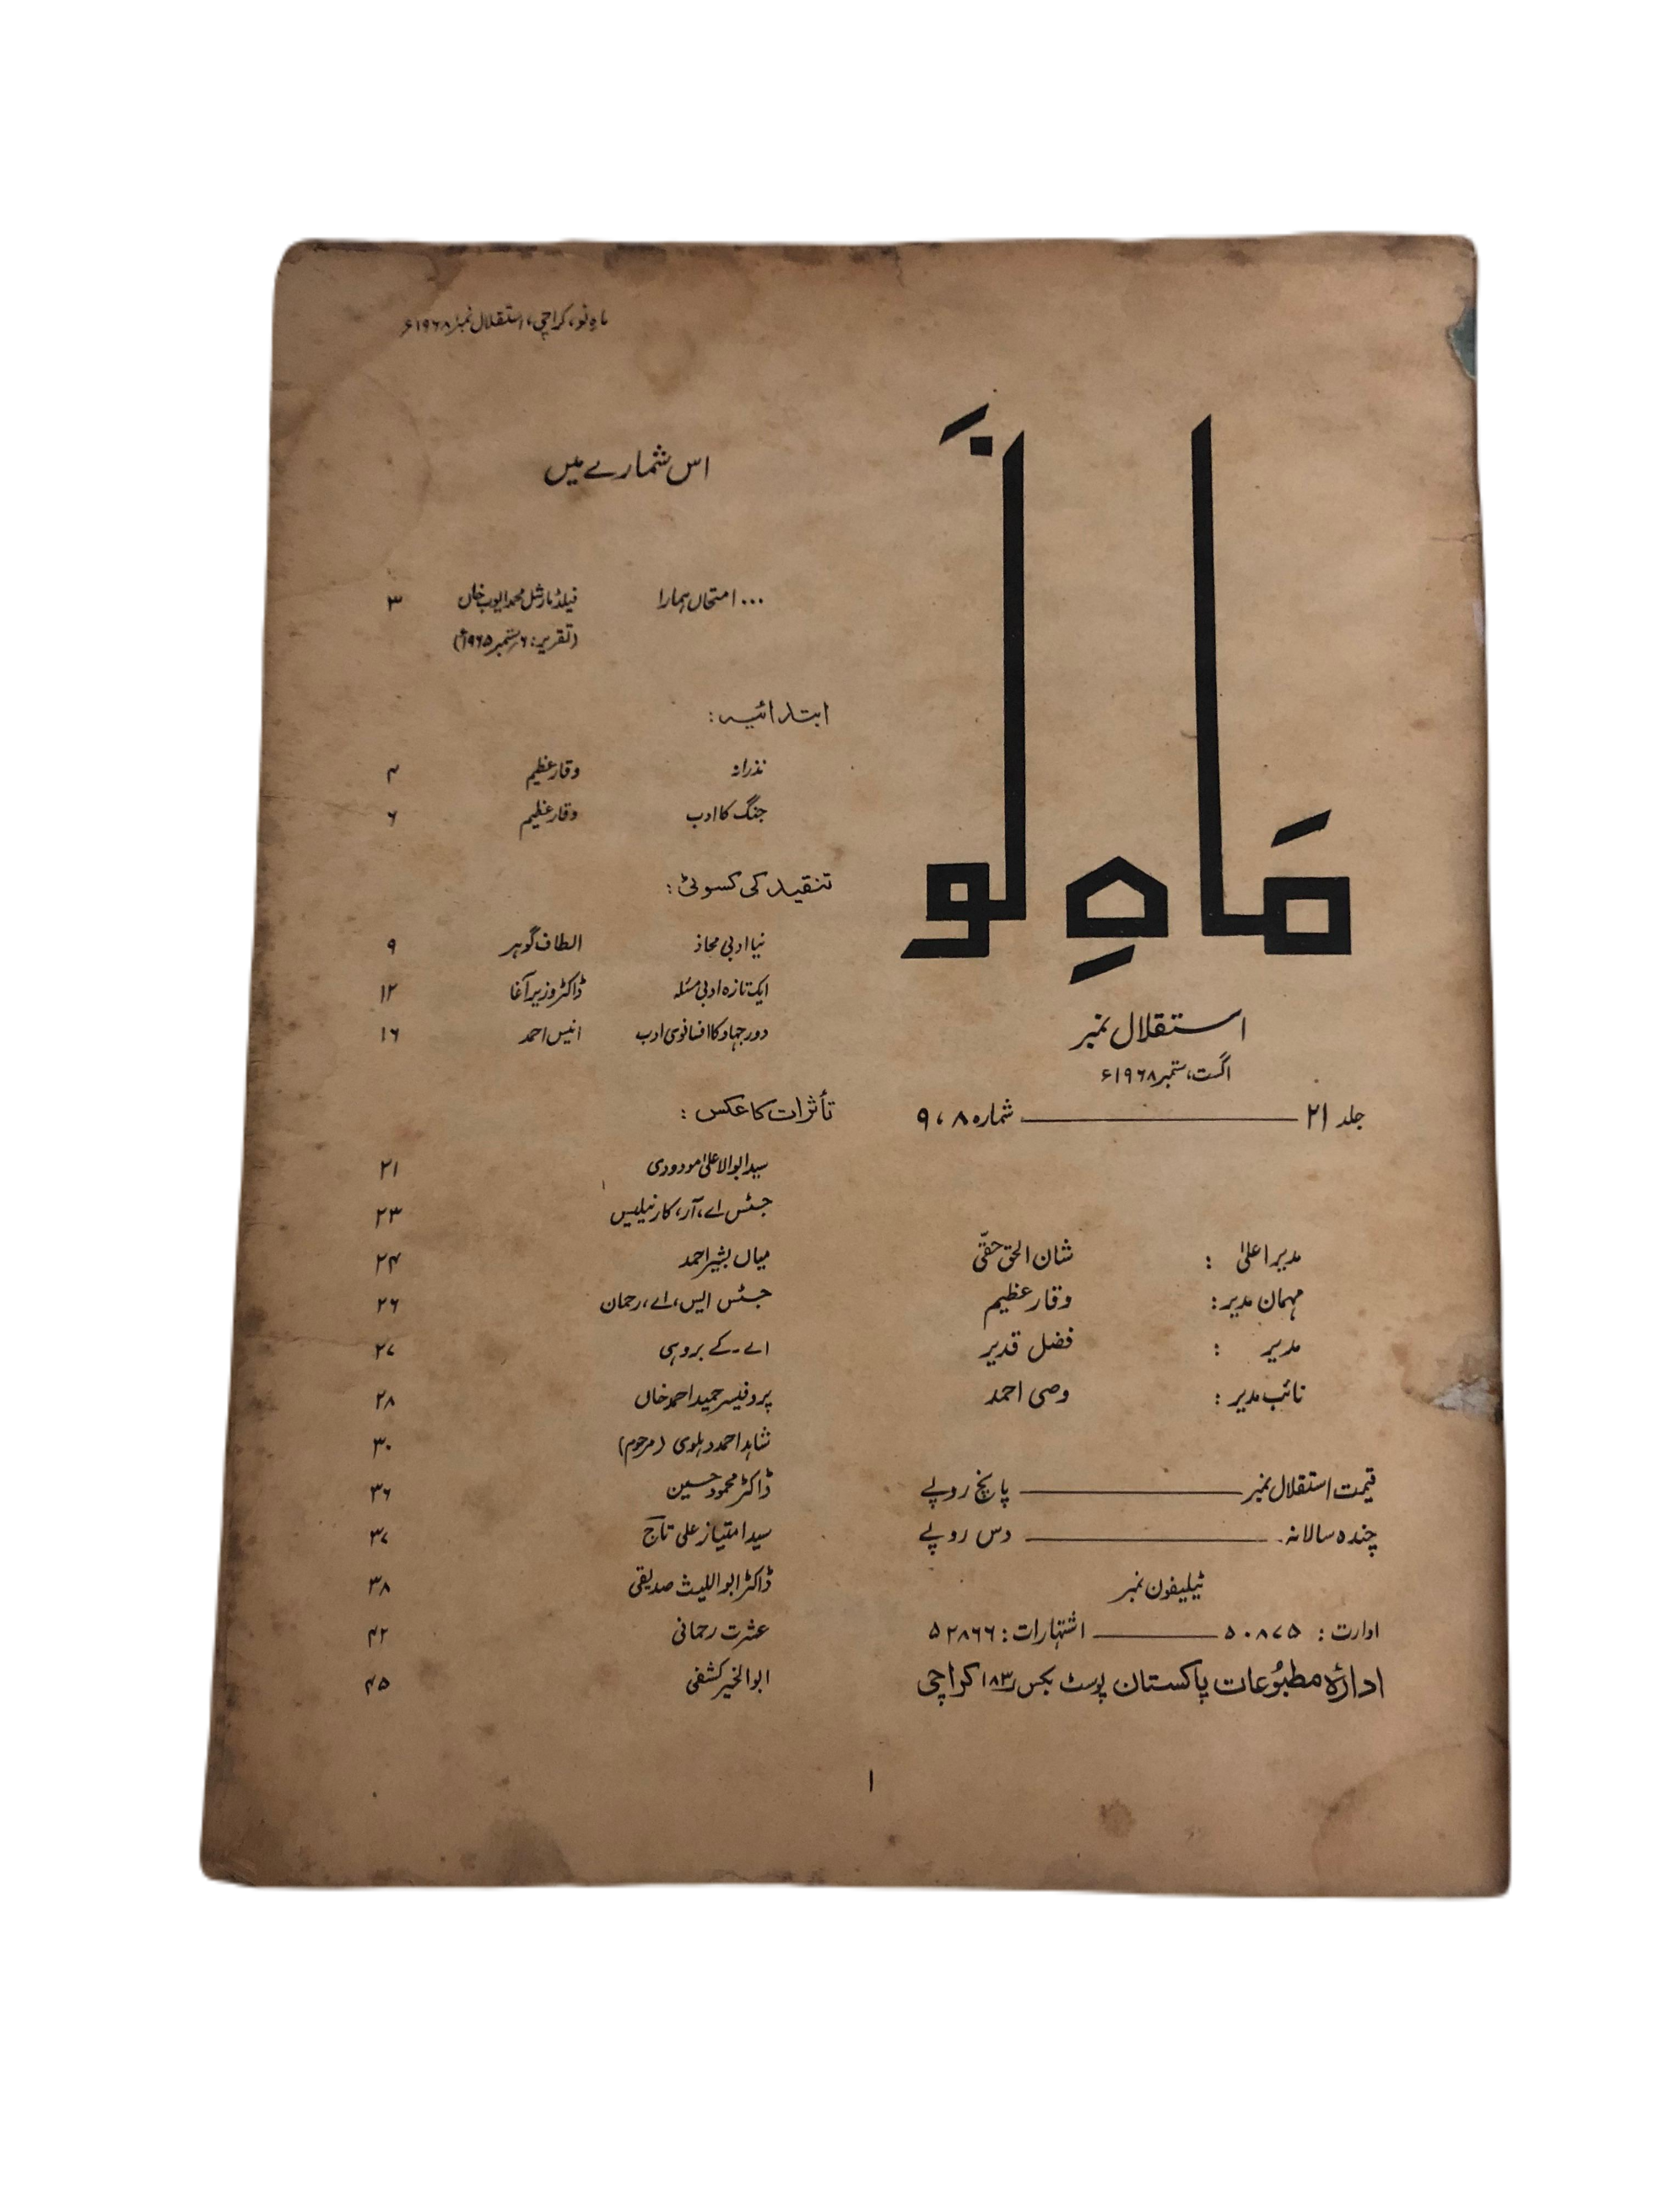 ماہِ نو، کراچی، استقلال نمبر ۱۹۶۸ء
مَاہِ نَو
استقلال نمبر
اگست، ستمبر ۱۹۶۸ء
جلد ۲۱ ــــــــ شمارہ ۸، ۹
مدیر اعلیٰ : شان الحق حقّی
مہمان مدیر : وقار عظیم
مدیر : فضل قدیر
نائب مدیر : وصی احمد
قیمت استقلال نمبر ــــــــ پانچ روپے
چندہ سالانہ ــــــــ دس روپے
ٹیلیفون نمبر
ادارت : ۵۰۸۷۵ ــــــــ اشتہارات : ۵۲۸۶۶
ادارۂ مطبُوعات پاکستان پوسٹ بکس ۱۸۳ کراچی
اس شمارے میں
... امتحاں ہمارا فیلڈ مارشل محمد ایوب خاں ۳
(تقریر: ۶ ستمبر ۱۹۶۵ء)
ابتدائیہ :
نذرانہ وقار عظیم ۴
جنگ کا ادب وقار عظیم ۶
تنقید کی کسوٹی :
نیا ادبی محاذ الطاف گوہر ۹
ایک تازہ ادبی مسئلہ ڈاکٹر وزیر آغا ۱۲
دور جہاد کا افسانوی ادب انیس احمد ۱۶
تأثرات کا عکس :
سید ابوالاعلیٰ مودودی ۲۱
جسٹس اے، آر، کارنیلیس ۲۳
میاں بشیر احمد ۲۴
جسٹس ایس، اے، رحمان ۲۶
اے۔ کے بروہی ۲۷
پروفیسر حمید احمد خاں ۲۸
شاہد احمد دہلوی (مرحوم) ۳۰
ڈاکٹر محمود حسین ۳۶
سید امتیاز علی تاج ۳۷
ڈاکٹر ابواللیث صدیقی ۳۸
عشرت رحمانی ۴۲
ابوالخیر کشفی ۴۵
۱